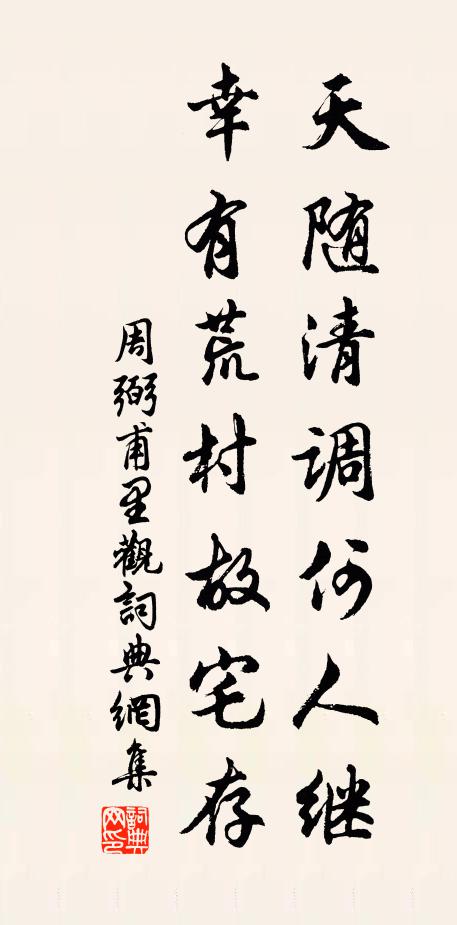 天随清调何人继
幸有荒村故宅存
周弼甫里觀詞典網集
詞典网印